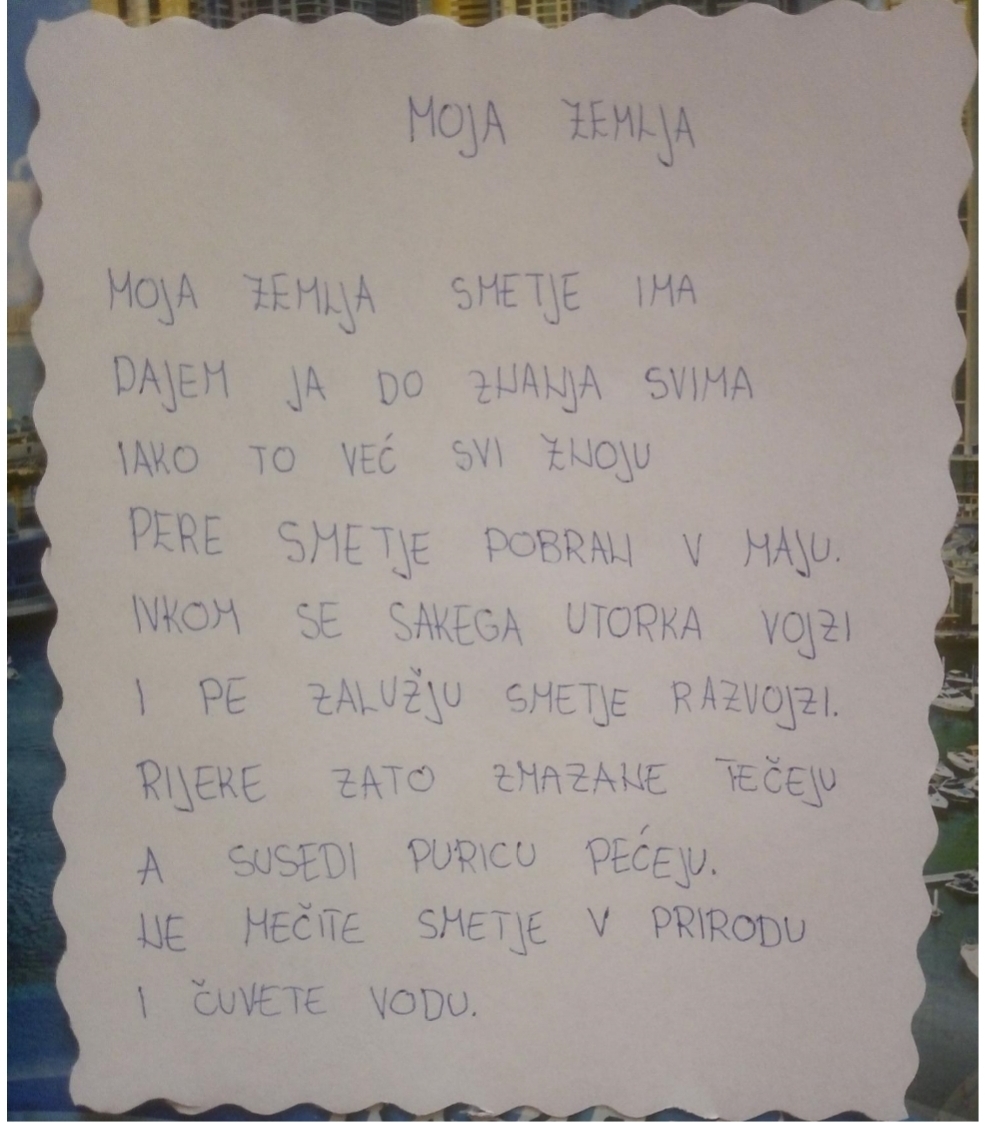 MOJA ZEMLJA
MOJA ZEMLJA SMETJE IMA
DAJEM JA DO ZNANJA SVIMA
IAKO TO VEĆ SVI ZNOJU
PERE SMETJE POBRAN V MAJU.
IVKOM SE SAKEGA UTORKA VOJZI
I PE ZALUŽJU SMETJE RAZVOJZI.
RIJEKE ZATO ZMAZANE TEČEJU
A SUSEDI PURICU PEĆEJU.
NE MEČITE SMETJE V PRIRODU
I ČUVETE VODU.